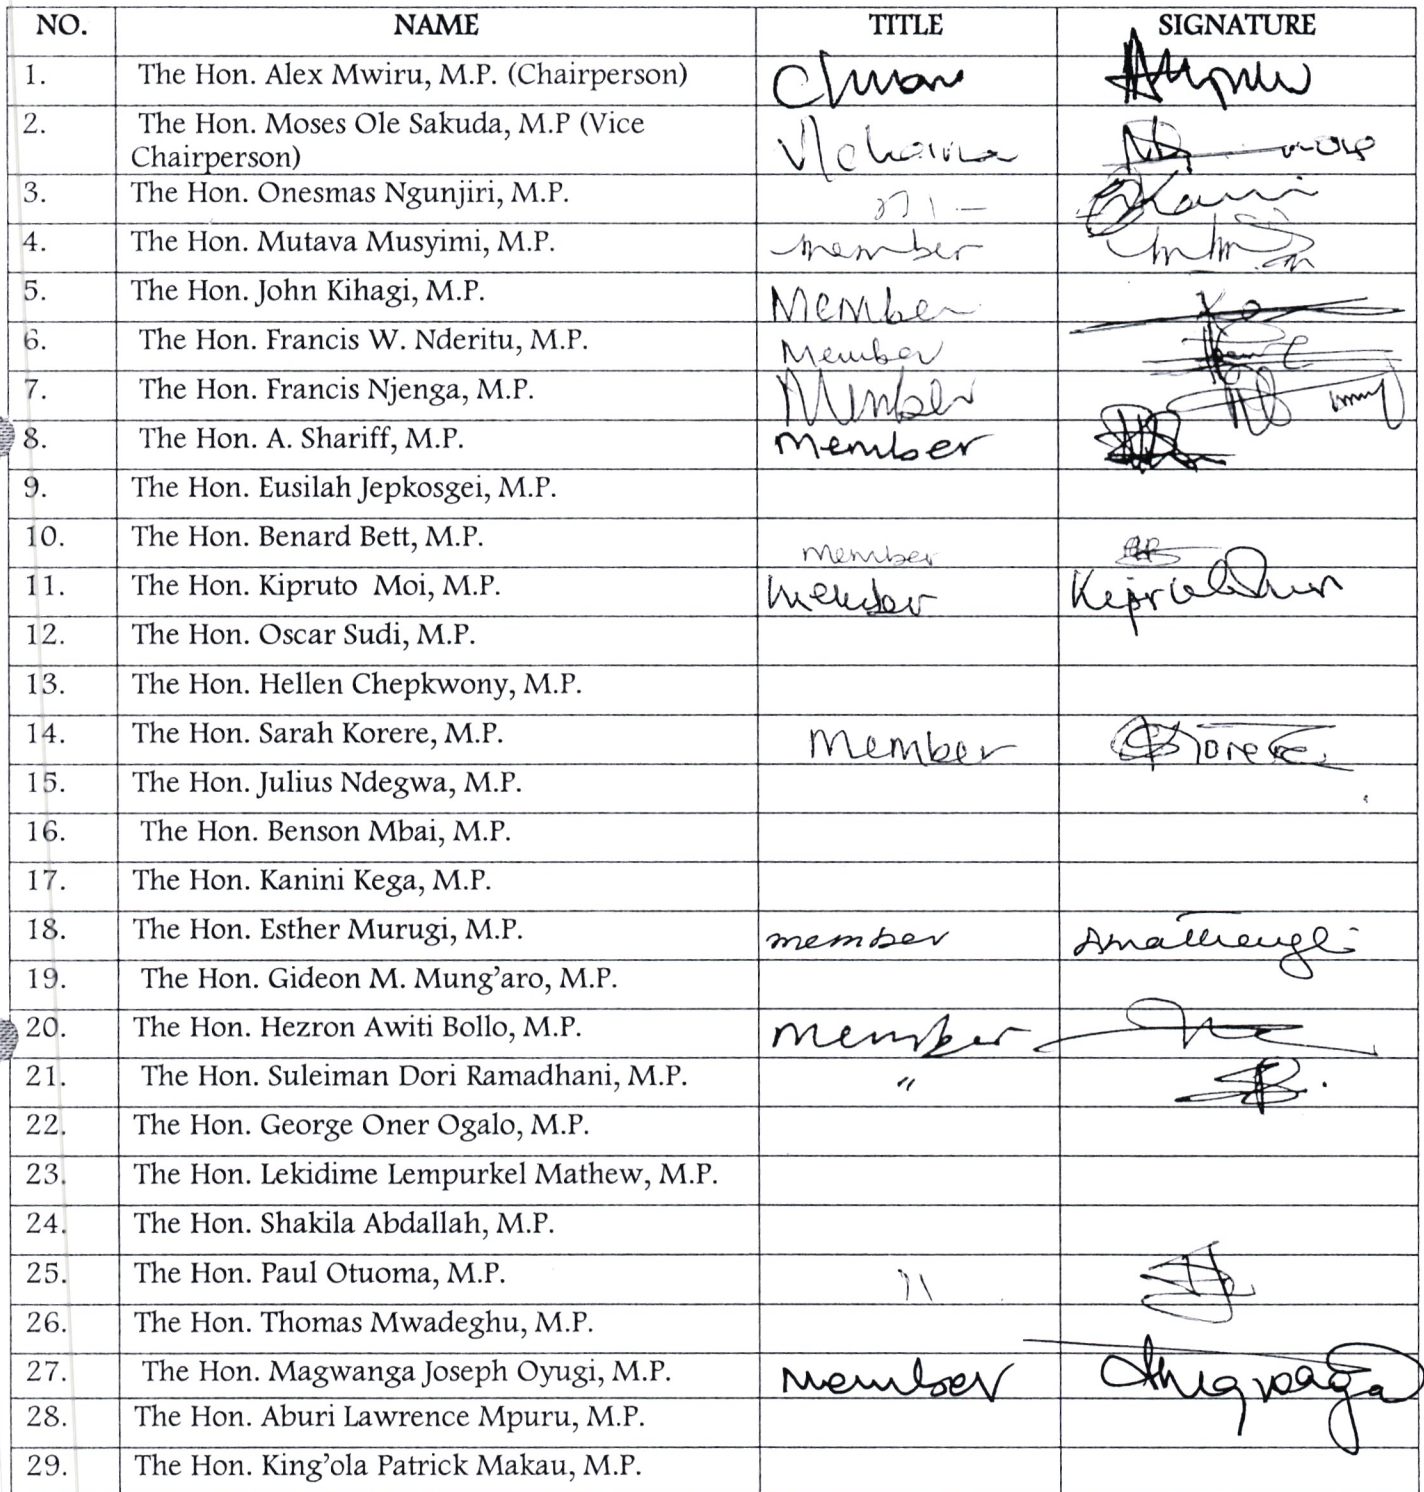 NO. NAME TITLE SIGNATURE
1. The Hon. Alex Mwiru, M.P. (Chairperson)
2. The Hon. Moses Ole Sakuda, M.P (Vice
Chairperson)
3. The Hon. Onesmas Ngunjiri, M.P.
4. The Hon. Mutava Musyimi, M.P. member
5. The Hon. John Kihagi, M.P. Member
6. The Hon. Francis W. Nderitu, M.P. Member
7. The Hon. Francis Njenga, M.P. Member
8. The Hon. A. Shariff, M.P. Member
9. The Hon. Eusilah Jepkosgei, M.P.
10. The Hon. Benard Bett, M.P. member
11. The Hon. Kipruto Moi, M.P. Member
12. The Hon. Oscar Sudi, M.P.
13. The Hon. Hellen Chepkwony, M.P.
14. The Hon. Sarah Korere, M.P. Member Korere
15. The Hon. Julius Ndegwa, M.P.
16. The Hon. Benson Mbai, M.P.
17. The Hon. Kanini Kega, M.P.
18. The Hon. Esther Murugi, M.P. member
19. The Hon. Gideon M. Mung'aro, M.P.
20. The Hon. Hezron Awiti Bollo, M.P. Member
21. The Hon. Suleiman Dori Ramadhani, M.P. "
22. The Hon. George Oner Ogalo, M.P.
23. The Hon. Lekidime Lempurkel Mathew, M.P.
24. The Hon. Shakila Abdallah, M.P.
25. The Hon. Paul Otuoma, M.P. "
26. The Hon. Thomas Mwadeghu, M.P.
27. The Hon. Magwanga Joseph Oyugi, M.P. Member
28. The Hon. Aburi Lawrence Mpuru, M.P.
29. The Hon. King'ola Patrick Makau, M.P.